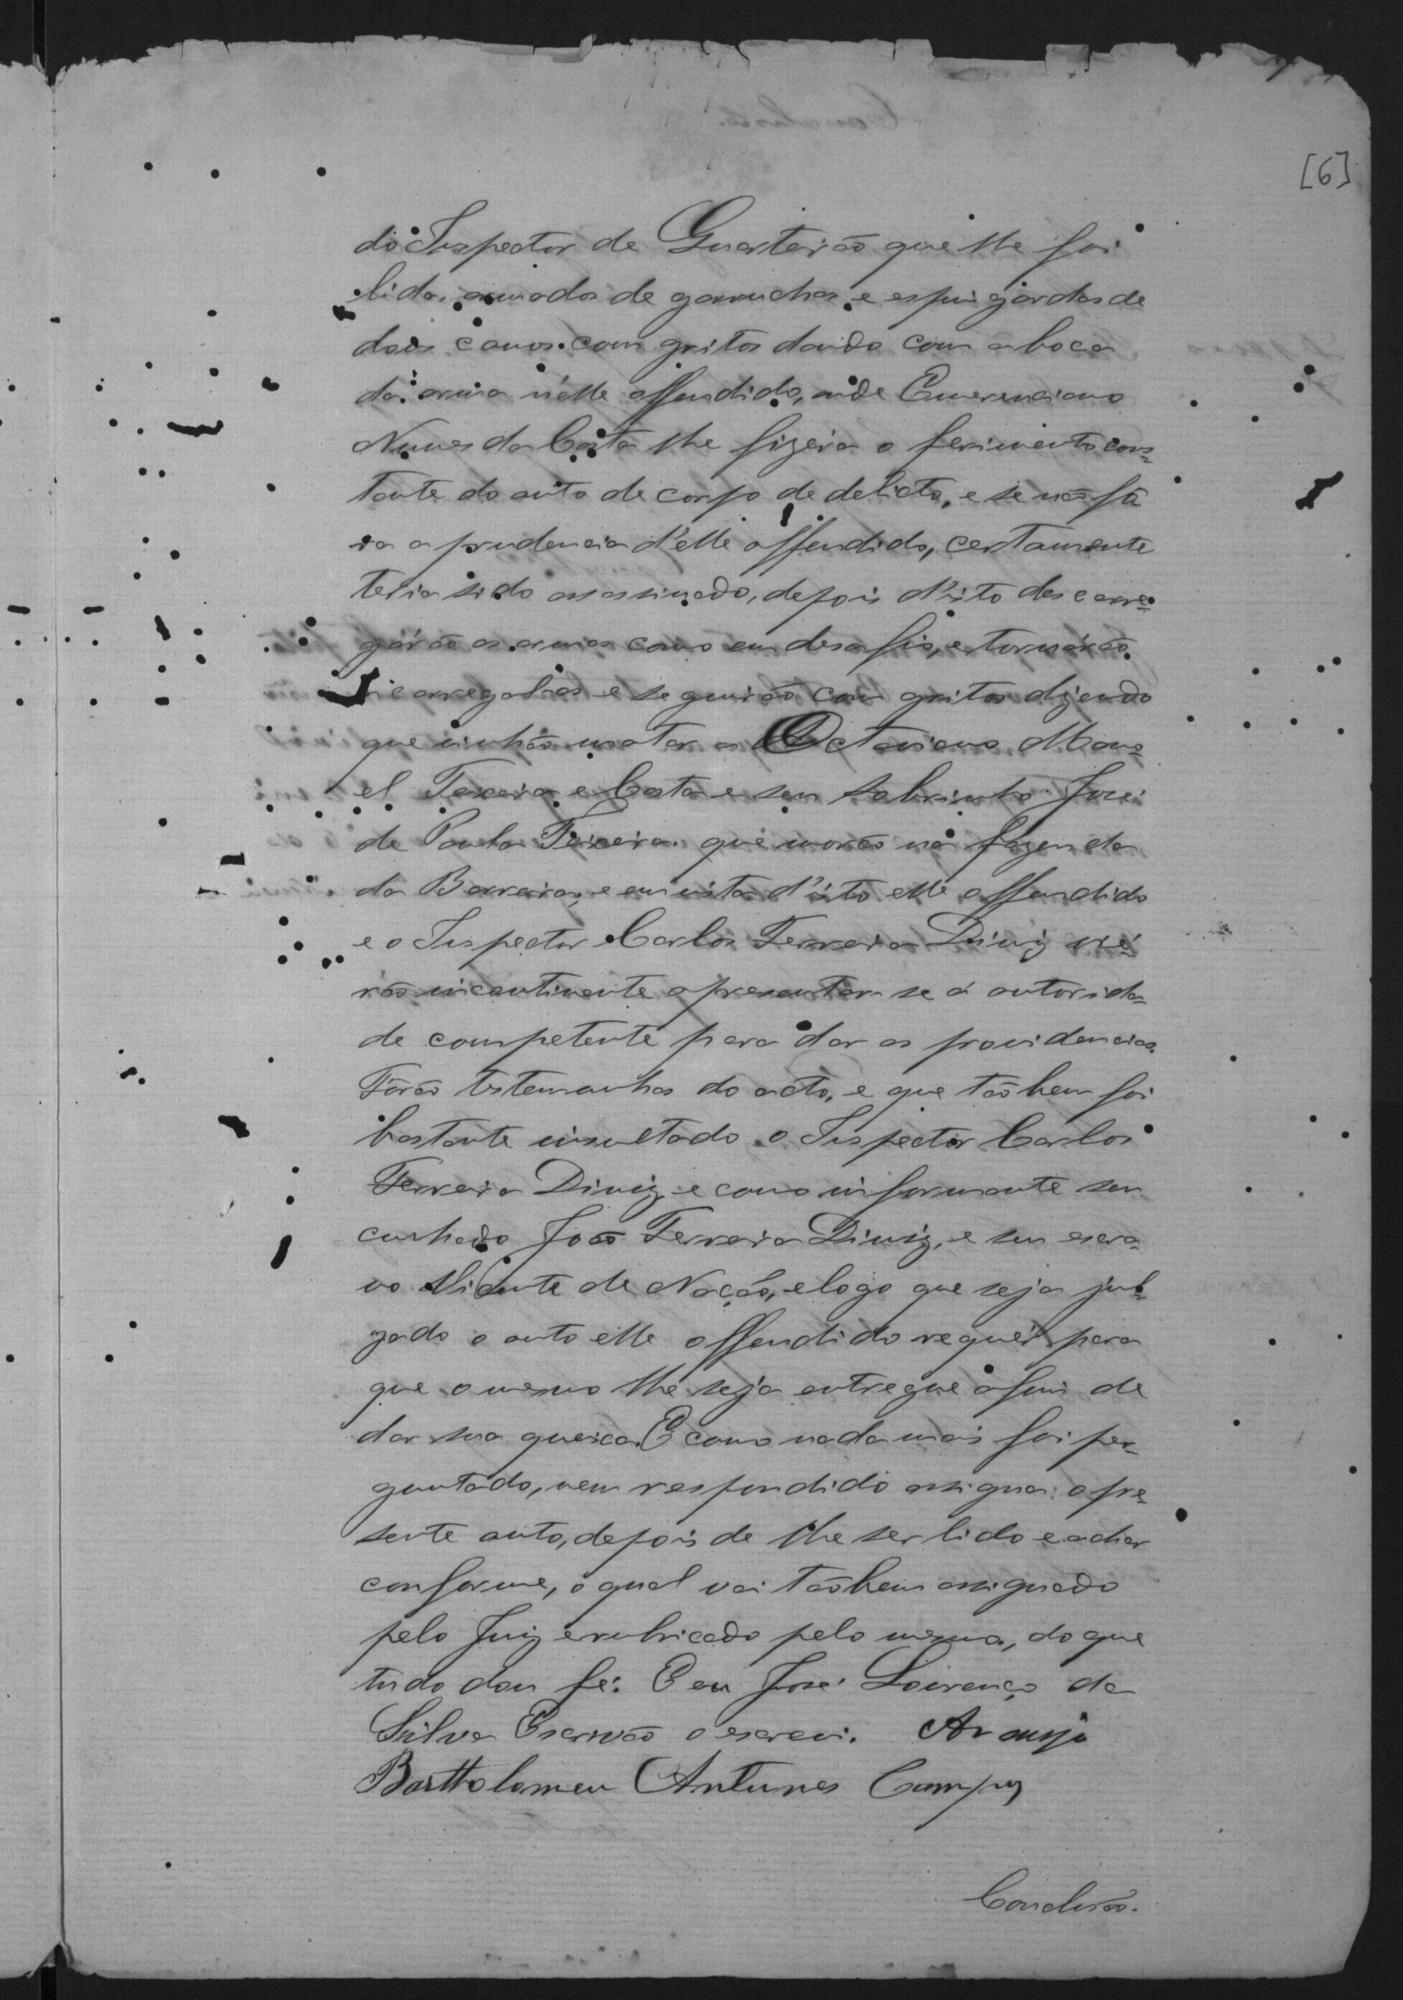 [6]
do Inspector de Quarteirão que lhe foi
lida, armados de garruchas, e espingardas de
dois canos. com gritos dando com a boca
da arma n'elle offendido, onde Emerenciano
Nunes da Costa lhe fizera o ferimento cons=
tante do auto de corpo de delicto, e se não fô
ra a prudencia d'elle offendido, certamente
teria sido assassinado, depois d'isto descarre=
gárão as armas como em desafio, e tornárão
recarregal-as e seguirão com gritos dizendo
que vinhão matar a Octaviano Mano
el Texeira e Costa e seu sobrinho José
de Paula Teixeira que morão na fazenda
da Barreira, e em vista d'isto elle offendido
e o Inspector Carlos Ferreira Diniz vié=
rão incontinente apresentar se á autorida=
de competente para dar as providencias.
Fôrão testemunhas do acto, e que tãobem foi
bastante insultado o Inspector Carlos
Ferreira Diniz, e como informante seu
cunhado João Ferreira Diniz, e seu escra=
vo Vicente de Nação, e logo que seja jul=
gado o auto elle offendido requer para
que o mesmo lhe seja entregue a fim de
dar sua queixa. E como nada mais foi per=
guntado, nem respondido assigna o pre=
sente auto, depois de lhe ser lido e achar
conforme, o qual vai tãobem assignado
pelo Juiz e rubricado pelo mesmo, do que
tudo dou fé. E eu José Lourenço da
Silva Escrivão o escrevi. Araujo
Barttolomeu Antunes Campos
Conclusão.